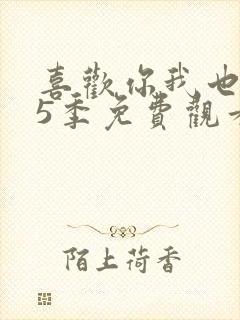 喜歡你我也
5季免費觀看
陌上荷香